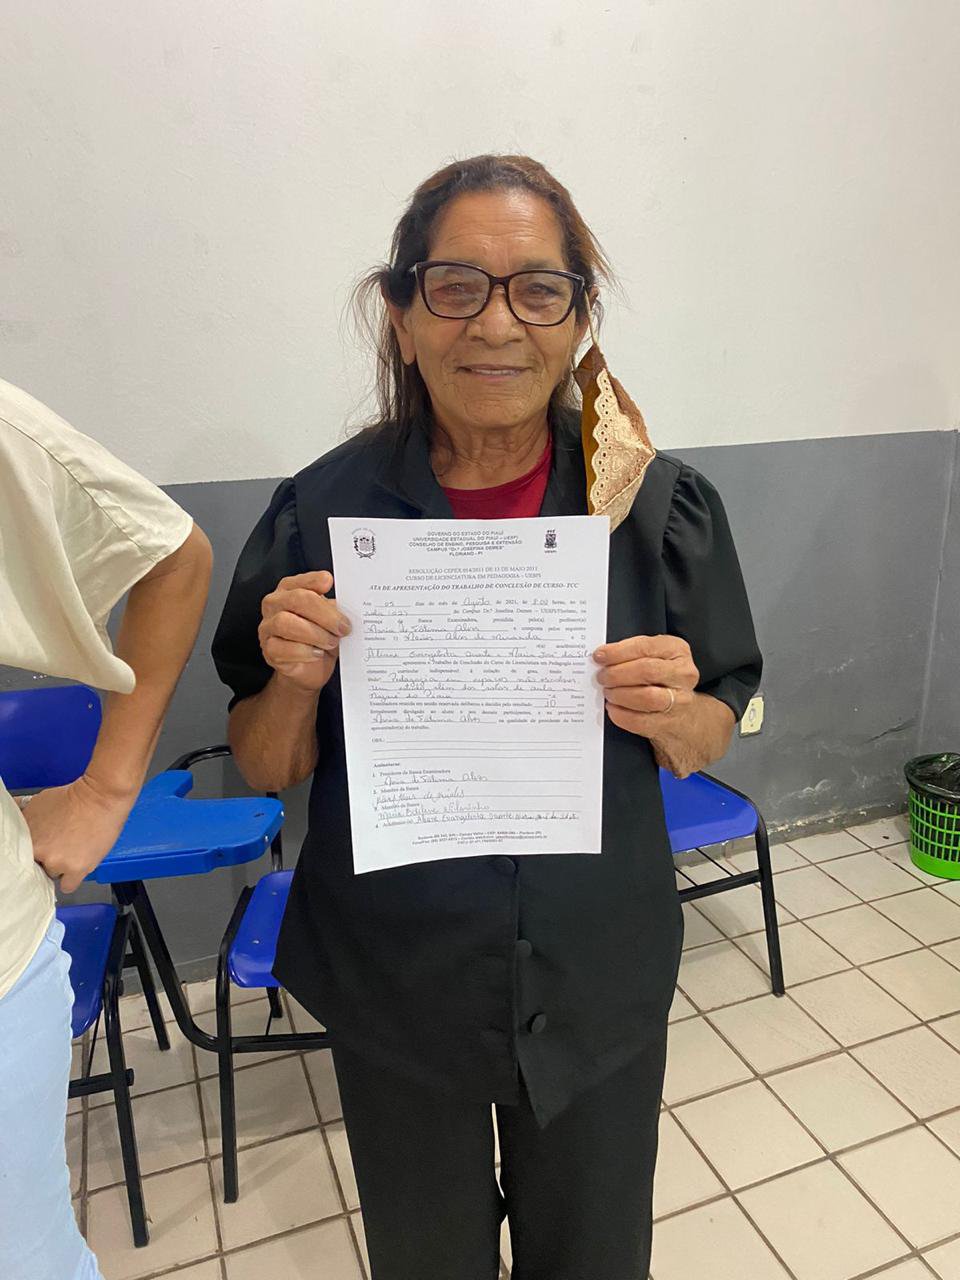 GOVERNO DO ESTADO DO PIAUÍ
UNIVERSIDADE ESTADUAL DO PIAUÍ – UESPI
CONSELHO DE ENSINO, PESQUISA E EXTENSÃO
CAMPUS "Drª JOSEFINA DEMES"
FLORIANO - PI
UESPI
RESOLUÇÃO CEPEX 014/2011 DE 13 DE MAIO 2011
CURSO DE LICENCIATURA EM PEDAGOGIA – UESPI
ATA DE APRESENTAÇÃO DO TRABALHO DE CONCLUSÃO DE CURSO- TCC
Aos 05 dias do mês de Agosto de 2021, às 8:00 horas, no (a)
do Campus Dr.ª Josefina Demes – UESPI/Floriano, na
presença da Banca Examinadora, presidida pelo(a) professor(a)
Maria de Fátima Alves e composta pelos seguintes
membros: 1) Alves de Miranda e 2)
o(a) acadêmico(a)
Aliane Evangelista Duarte e Maria José da Sil
apresentou o Trabalho de Conclusão do Curso de Licenciatura em Pedagogia como
elemento curricular indispensável à colação de grau, tendo como
título: Pedagogia em espaços não escolares
um estudo além das salas de aula em
Nazaré do Piauí A Banca
Examinadora reunida em sessão reservada deliberou e decidiu pelo resultado 10 ora
formalmente divulgado ao aluno e aos demais participantes, e eu professor(a)
Maria de Fátima Alves na qualidade de presidente da banca
apresentador(a) do trabalho.
OBS.:
Assinaturas:
1. Presidente da Banca Examinadora
Maria de Fátima Alves
2. Membro da Banca
3. Membro da Banca
Maria
4. Acadêmico (a) Aliane Evangelista Duarte Maria José da Silva